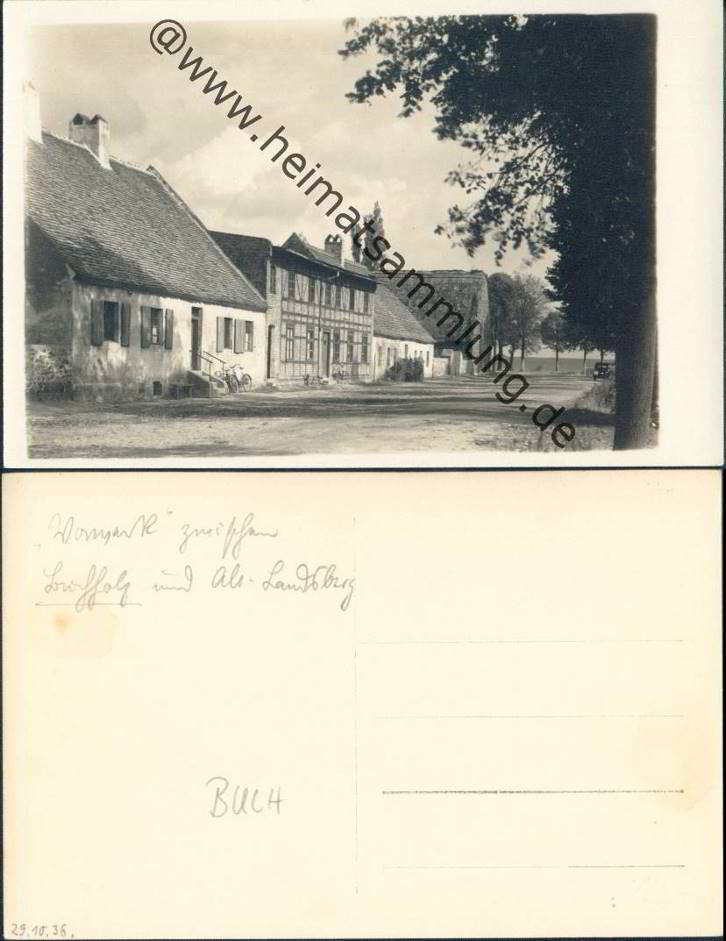 @www.heimatsammlung.de
„Vorwerk" zwischen
Buchholz und Alt-Landsberg
BUCH
29.10.36.